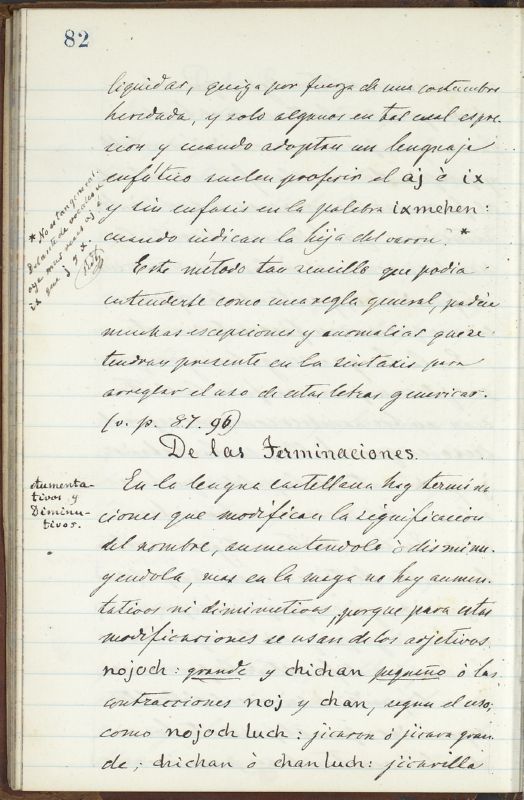 82
liquidas, quiza por fuerza de una costumbre
heredada, y solo algunos en tal cual espre-
sion y cuando adoptan un lenguaje
enfático suelen proferir el aj ò ix
y sin enfasis en la palabra ixmehen:
cuando indican la hija del varon. *
* No es tan general.
Delante de vocales se
oye mas aj è
ix que j y x.
Este método tan sencillo que podia
entenderse como una regla general, padece
muchas escepciones y anomalias que se
tendran presente en la sintaxis para
arreglar el uso de estas letras genericas.
(v. p. 87. 96)
De las Terminaciones.
Aumenta-
tivos y
Diminu-
tivos.
En la lengua castellana hay termina
ciones que modifican la significacion
del nombre, aumentandolo ò disminu-
yendola, mas en la maya no hay aumen-
tativos ni diminutivos, porque para estas
modificaciones se usan de los adjetivos
nojoch: grande y chichan pequeño ò las
contracciones noj y chan, segun el uso;
como nojoch luch: jicaron ó jicara gran-
de; chichan ò chanluch: jicarilla